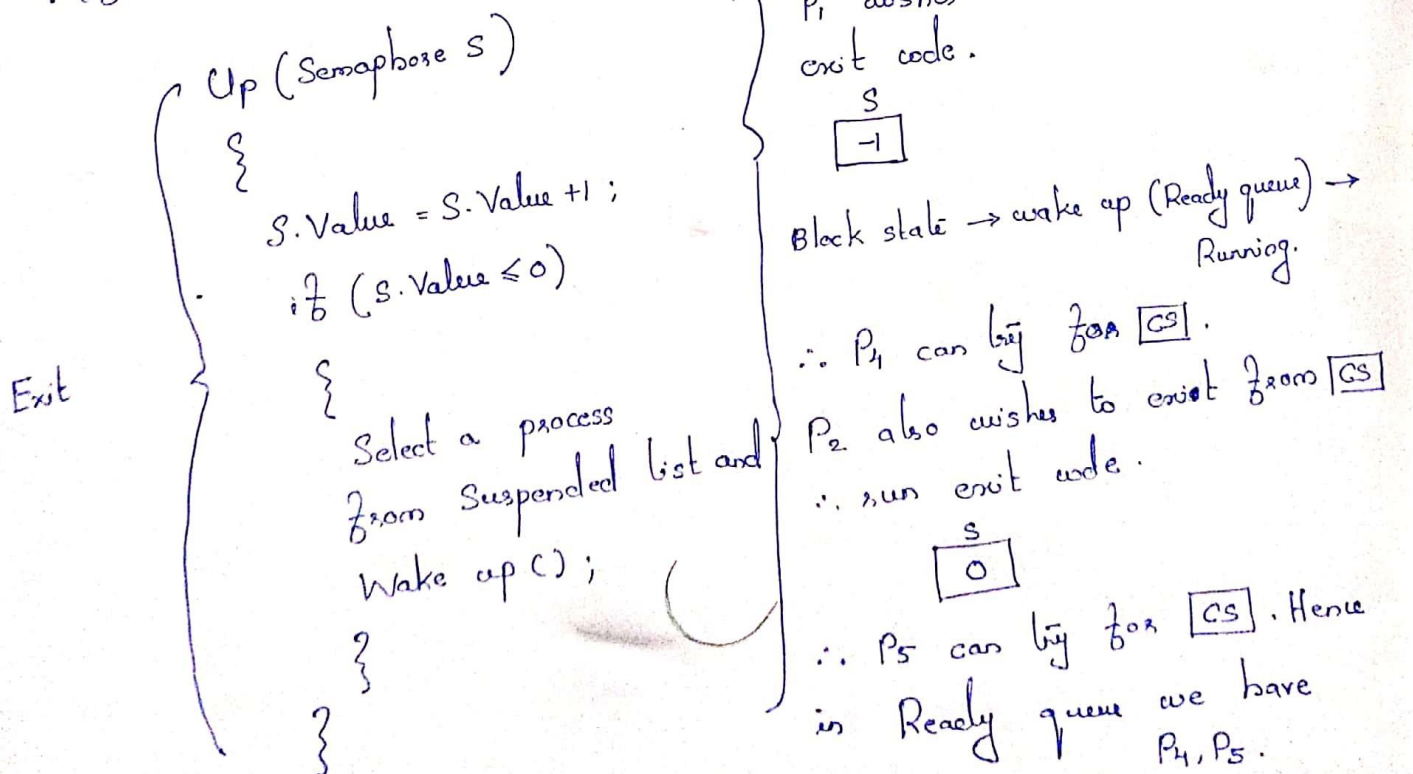 Up (Semaphore S)
{
S.Value = S.Value +1 ;
if (S.Value ≤ 0)
{
Select a process
from Suspended list and
Wake up ( ) ;
}
}
Exit
P1
exit code .
S
-1
Block state → wake up (Ready queue) →
Running.
∴ P4 can try for CS .
P2 also wishes to exist from CS
∴ run exit code .
S
0
∴ P5 can try for CS . Hence
in Ready queue we have
P4, P5 .